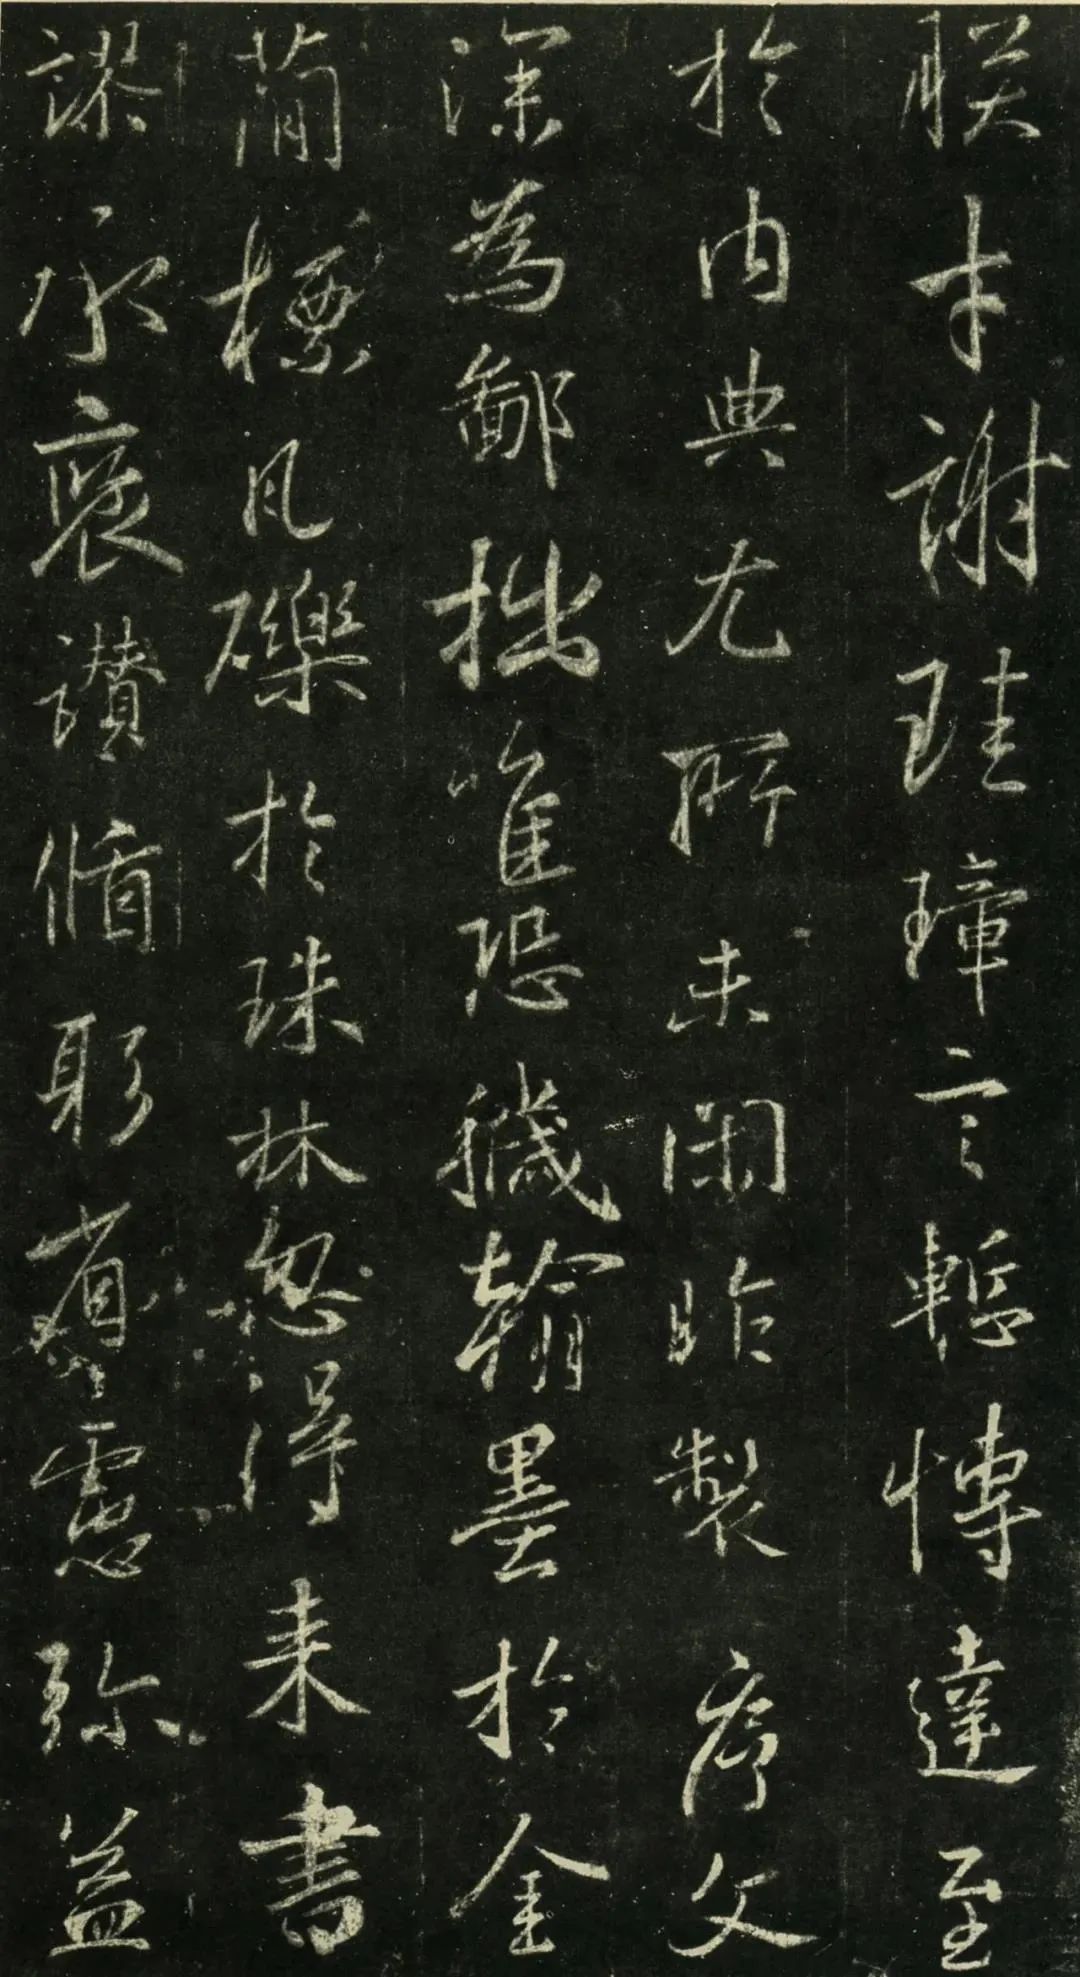 朕才謝珪璋言慙博達至
於内典尤所未閑昨製序文
深為鄙拙唯恐穢翰墨於金
簡標瓦礫於珠林忽得来書
謬承褒讃循躬省慮弥益